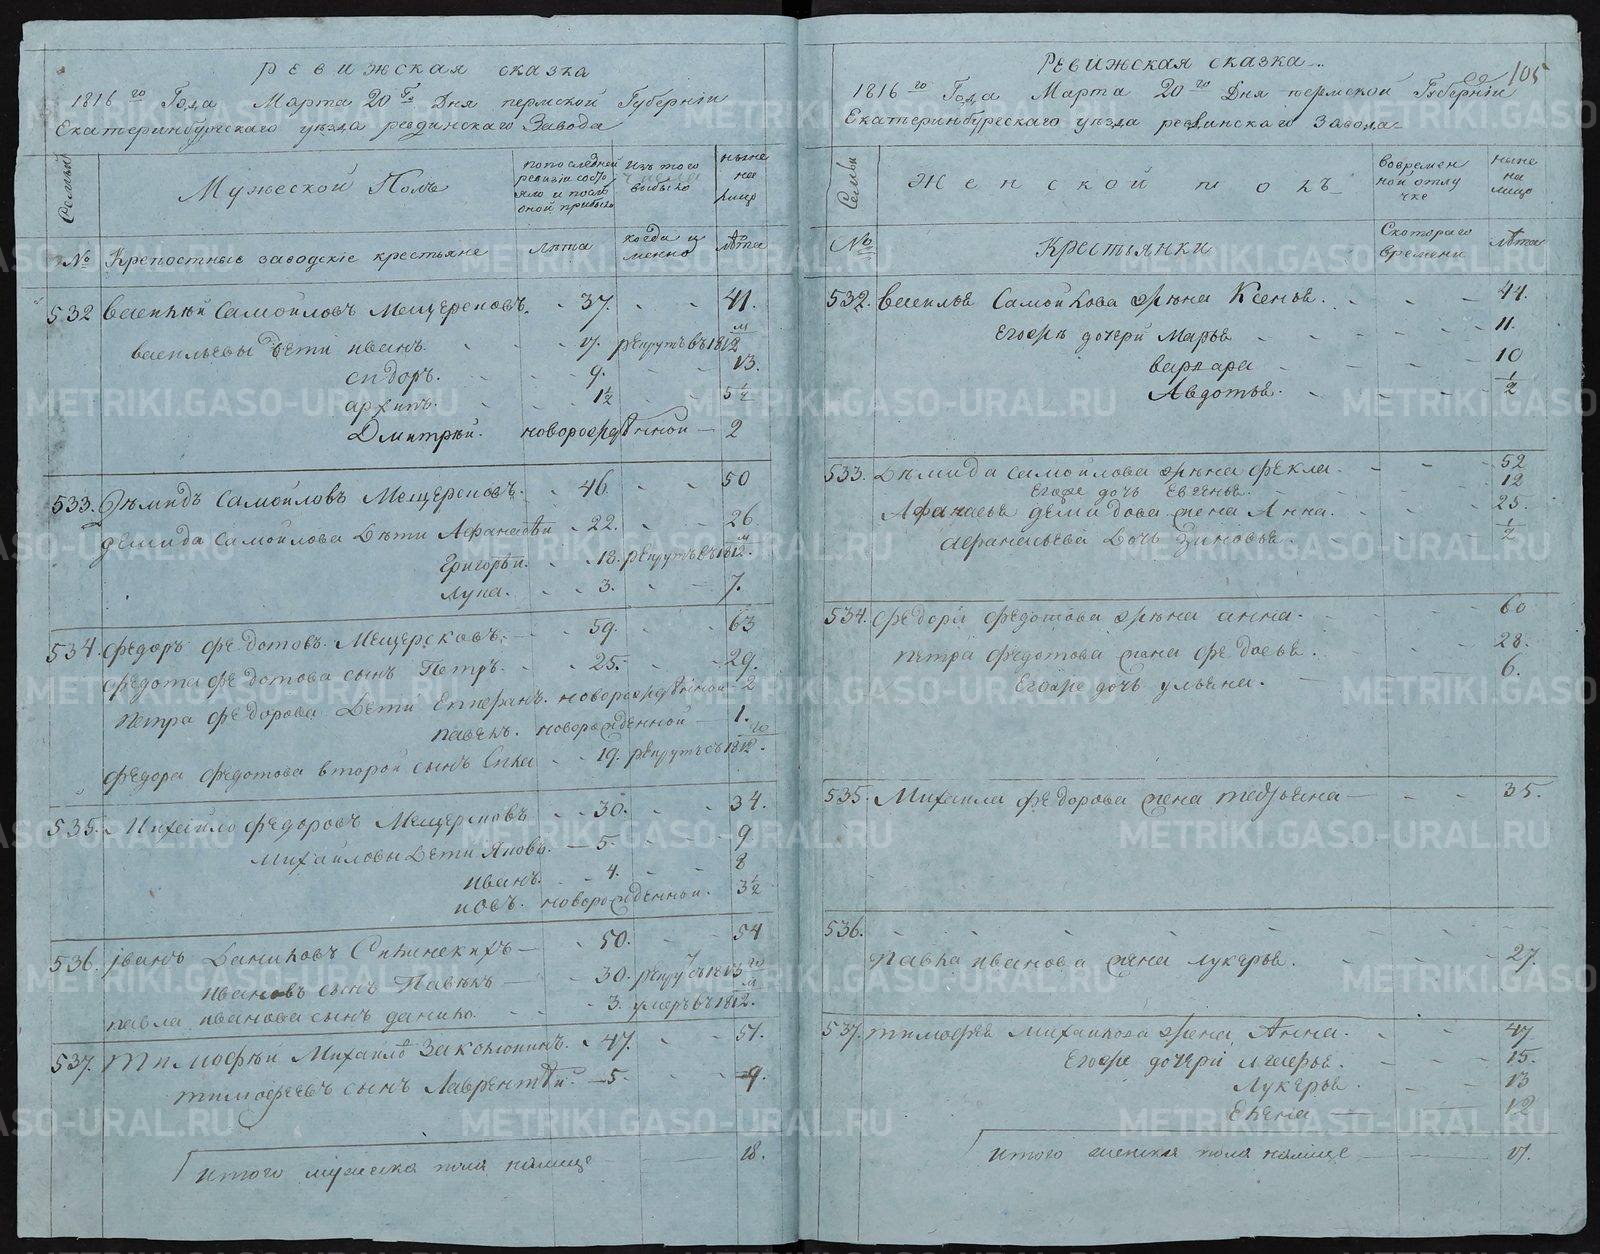 Ревижская сказка
1816го Года Марта 20го Дня пермской Губернiи
Екатеринбургскаго уѣзда ревдинскаго Завода
Семьи
Мужеской Полъ
попоследней ревизiи состояло и после оной прибыло
Изъ того числа выбыло
ныне на лицо
№ Крепостные заводскiе крестьяне
лѣта
когда именно
лѣта
532 Василѣй Самойловъ Мещеряковъ. 37. 41.
васильевы дети иванъ. 17. рекрутъ въ 1812м
сидоръ. 9. 13.
архипъ. 1½ 5½
Дмитрѣй. новорожденной 2
533. Дѣмидъ Самойловъ Мещеряковъ. 46. 50
демида самойлова Дѣти Афанасѣй 22. 26
Григорѣй. 18. рекрутъ въ 1812м.
Лука. 3. 7.
534. Федоръ Федотовъ Мещеряковъ. 59. 63
Федота Федотова сынъ Петръ. 25. 29.
Петра Федорова Дети новорожденной 2
павелъ. новорожденной 1.
Федора Федотова второй сынъ 19. рекрутъ въ 1812го.
535. Михайло Федоровъ Мещеряковъ 30. 34.
Михайловы Дети Яковъ. 5. 9
иванъ. 4. 8
новорожденной. 3½
536. Iванъ Даниловъ 50. 54
ивановъ сынъ Павелъ 30. рекрутъ 1813го
павла иванова сынъ данило. 3. умеръ въ 1812м.
537. Тимофѣй Михайловъ Заколюкинъ. 47. 51.
тимофеевъ сынъ Лаврентѣй. 5. 9.
итого мужеска пола налице 18.
105
Ревижская сказка
1816го Года Марта 20го Дня пермской Губернiи
Екатеринбургскаго уѣзда ревдинскаго Завода
Семьи
Женской полъ
вовременной отлучке
ныне на лицо
№
Крестьянки
Скотораго времени
лѣта
532. Василья Самойлова жена Ксенья. 44.
Егоже дочери Марья 11.
варвара 10
Авдотья. ½
533. Дѣмида самойлова жена фекла. 52
Егоже дочь Евгенья. 12
Афанасья демидова жена Анна. 25.
афанасьева Дочь Зиновья. ½
534. Федора федотова жена анна. 60
петра федотова жена федосья. 28.
Егоже дочь ульяна. 6.
535. Михаила федорова жена татьяна 35.
536.
Павла иванова жена лукерья. 27.
537. тимофея михайлова жена Анна. 47
Егоже дочери 15.
Лукерья. 13
Елена 12
итого женска пола налице 17.
METRIKI.GASO-URAL.RU